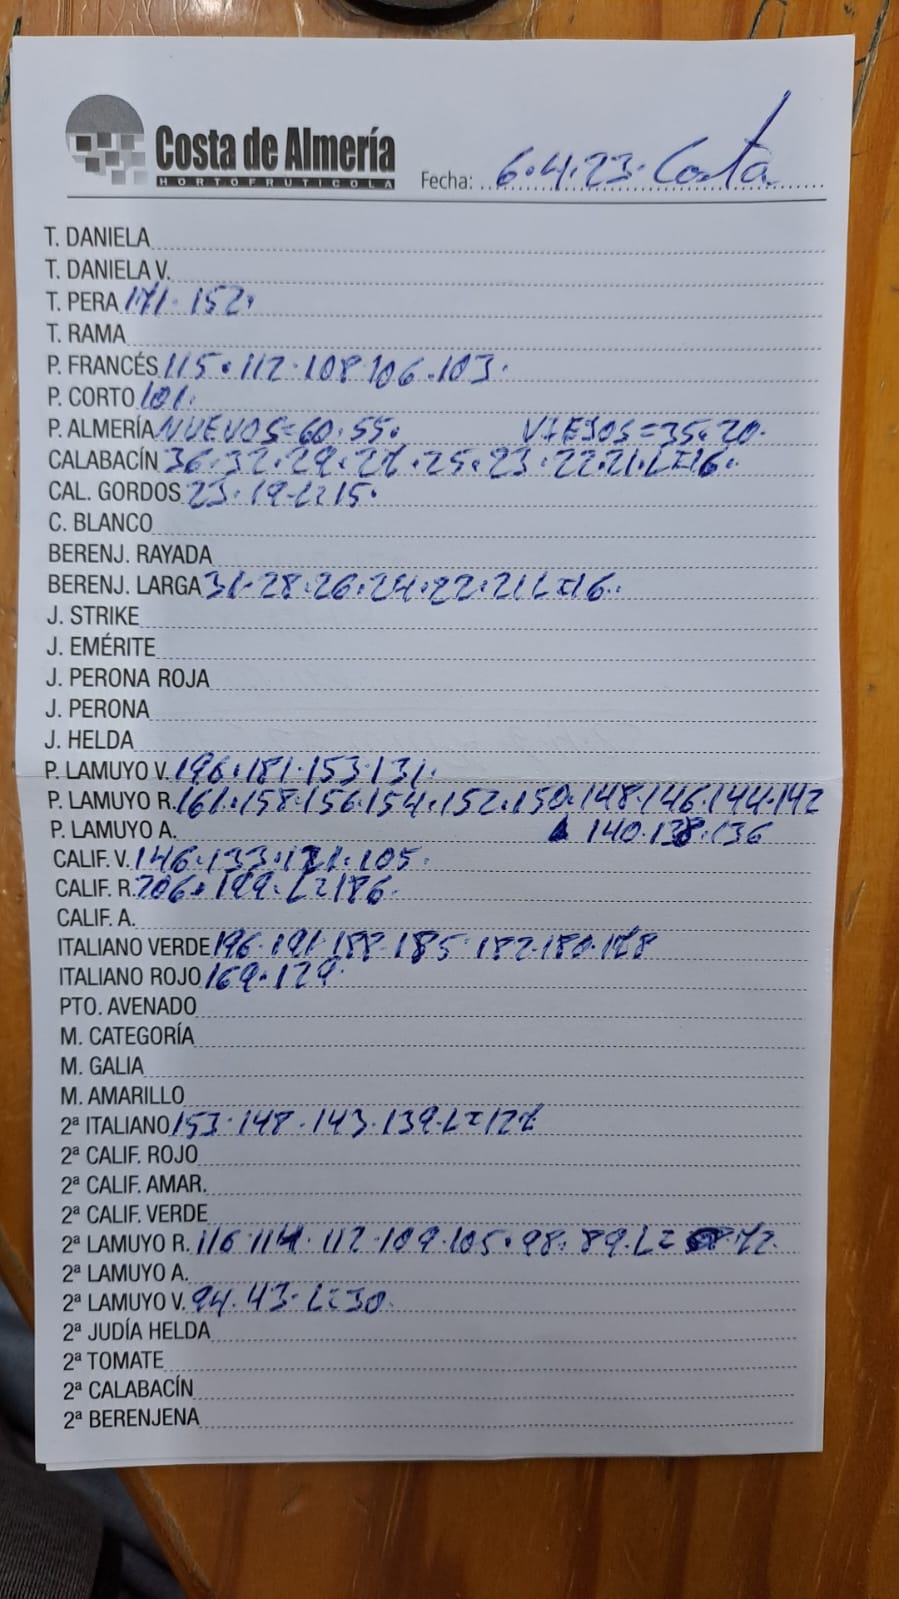 Costa de Almería
HORTOFRUTICOLA
Fecha: 6.4.23. Costa
T. DANIELA
T. DANIELA V.
T. PERA 171. 152.
T. RAMA
P. FRANCÉS 115. 112. 108 106. 103.
P. CORTO 101.
P. ALMERÍA NUEVOS=60.55. VIEJOS=35.20.
CALABACÍN 36.32.29.27.25.23.22.21.L=16.
CAL. GORDOS 23.19.L=15.
C. BLANCO
BERENJ. RAYADA
BERENJ. LARGA 31.28.26.24.22.21 L=16.
J. STRIKE
J. EMÉRITE
J. PERONA ROJA
J. PERONA
J. HELDA
P. LAMUYO V. 196.181.153.131.
P. LAMUYO R. 161.158.156.154.152.150.148.146.144.142
P. LAMUYO A. 140.138.136
CALIF. V. 146.133.121.105.
CALIF. R. 206.199.L=186.
CALIF. A.
ITALIANO VERDE 196.191.188.185.182.180.178
ITALIANO ROJO 169.129.
PTO. AVENADO
M. CATEGORÍA
M. GALIA
M. AMARILLO
2ª ITALIANO 153.148.143.139.L=127
2ª CALIF. ROJO
2ª CALIF. AMAR.
2ª CALIF. VERDE
2ª LAMUYO R. 116 114. 112.109.105.98.89.L= 72.
2ª LAMUYO A.
2ª LAMUYO V. 94.43.L=30.
2ª JUDÍA HELDA
2ª TOMATE
2ª CALABACÍN
2ª BERENJENA